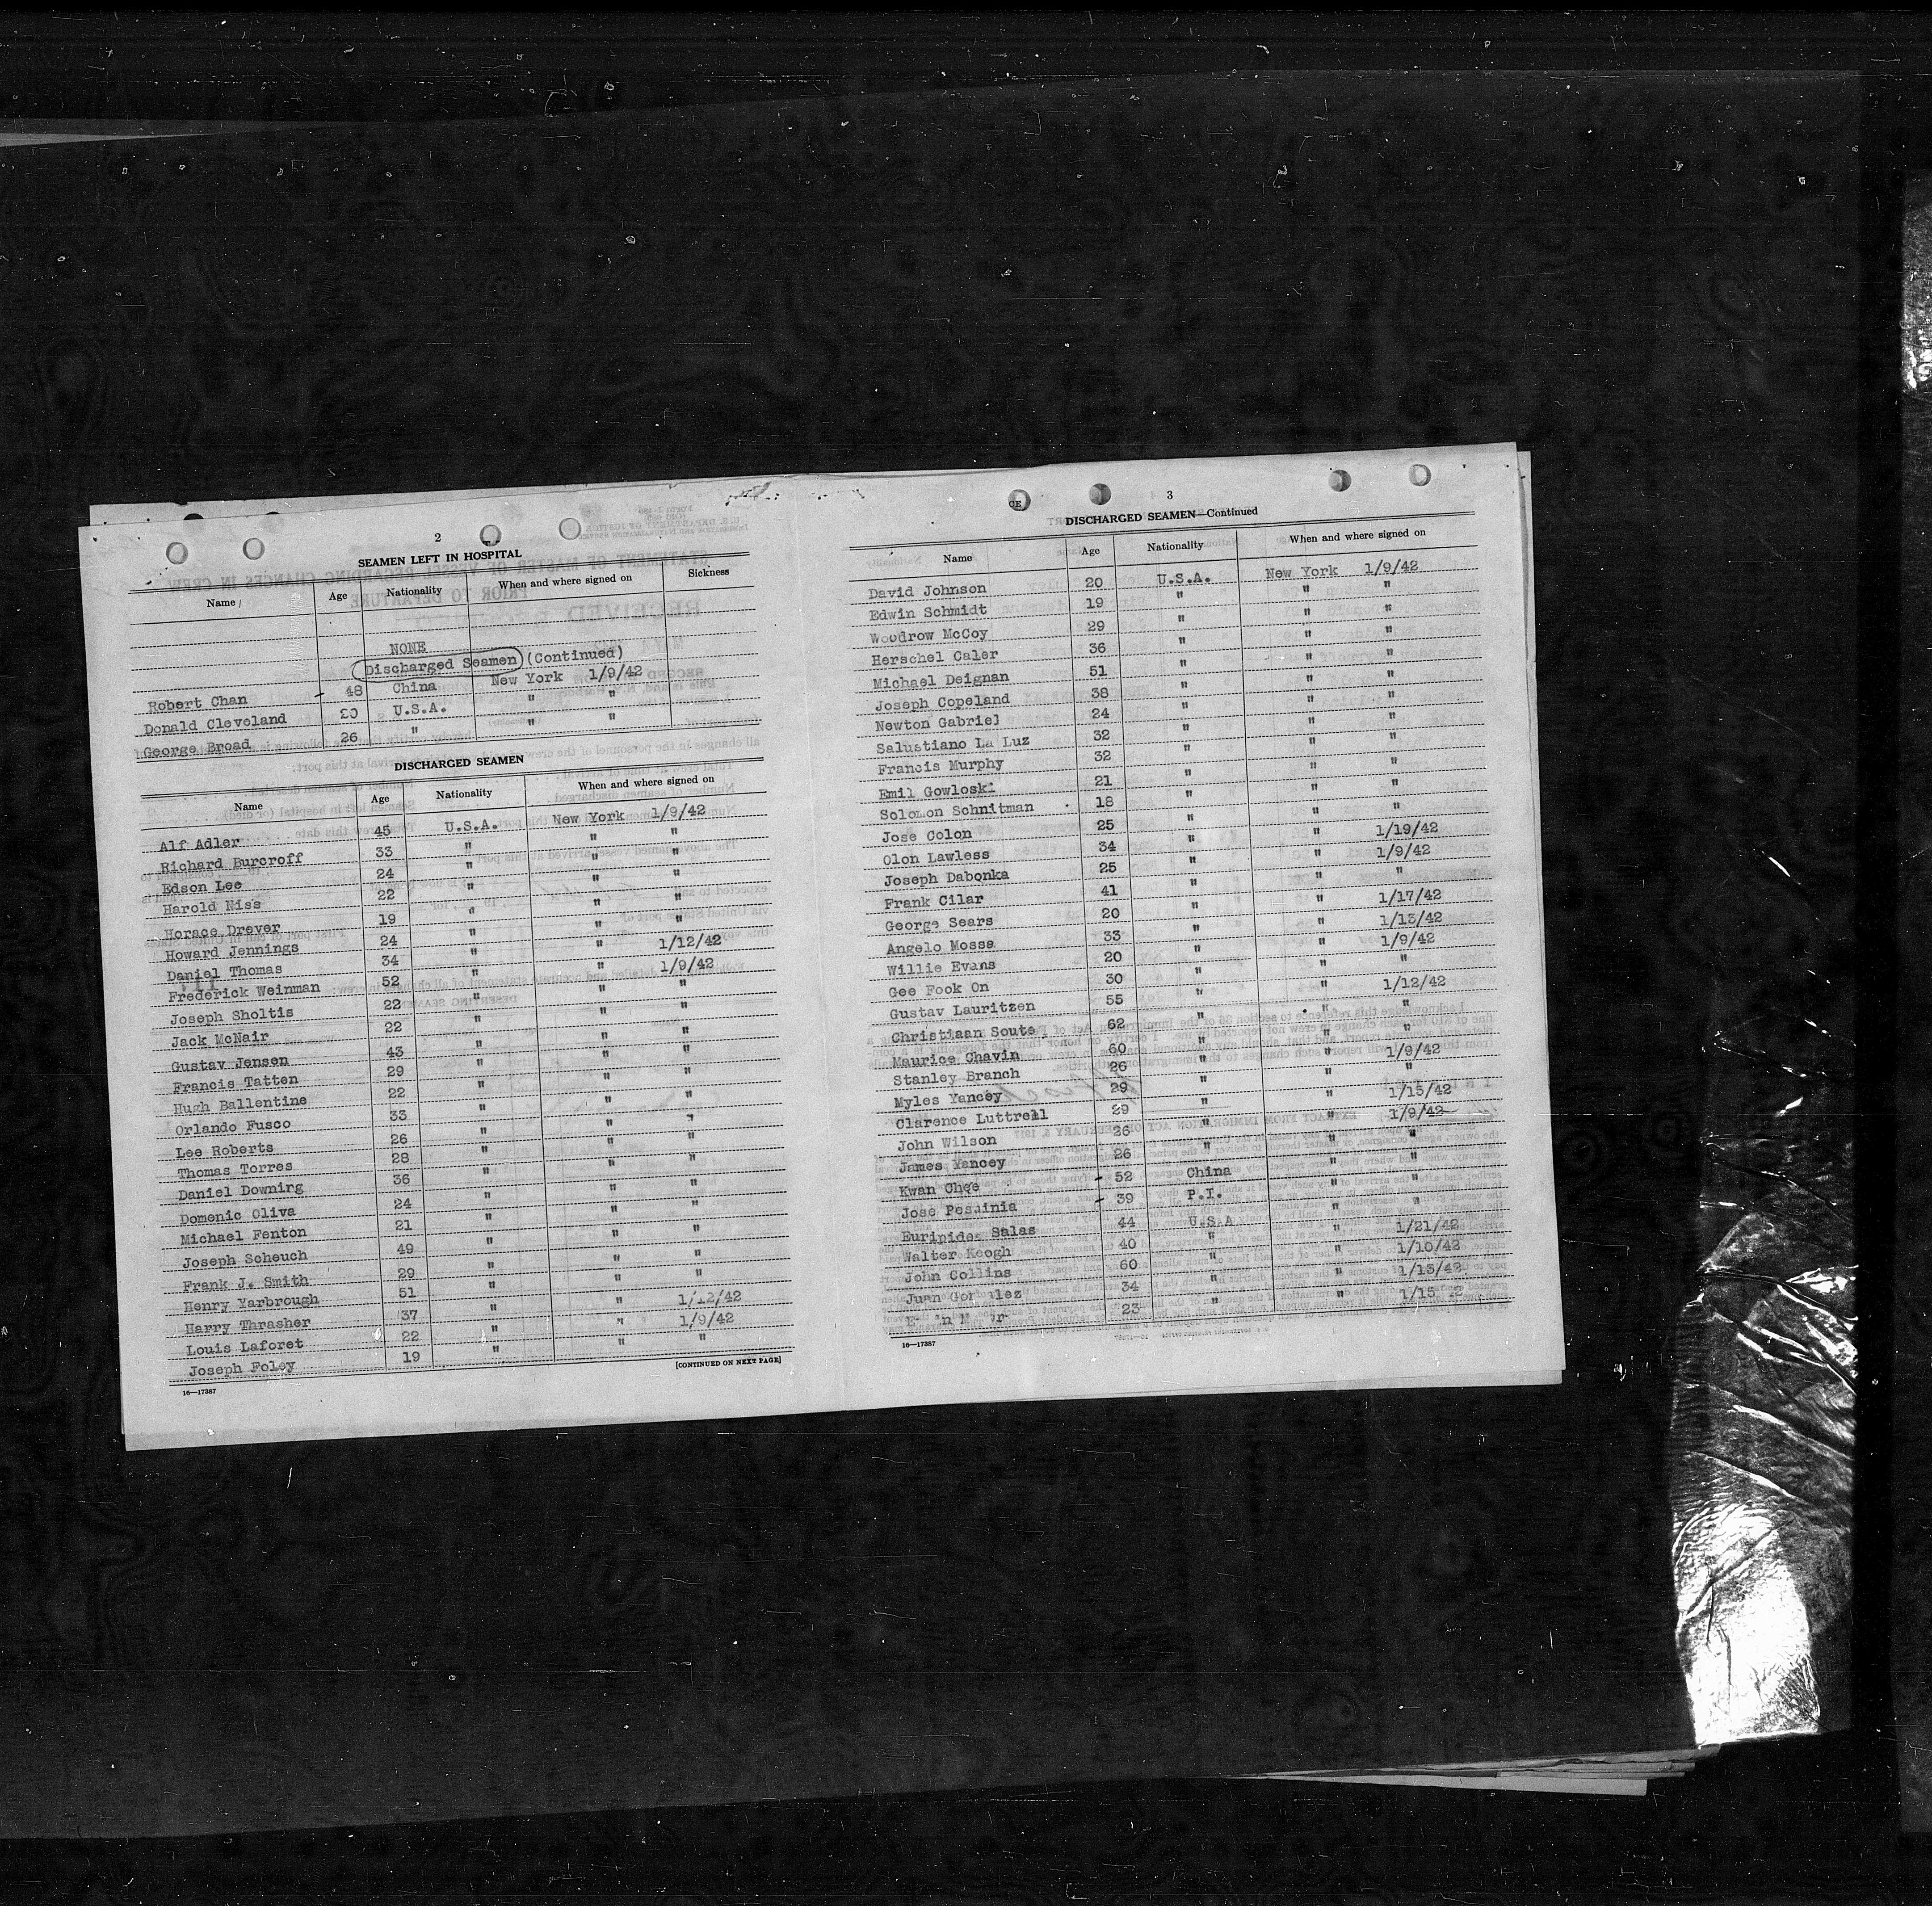 2
SEAMEN LEFT IN HOSPITAL
Name Age Nationality When and where signed on Sickness
NONE
Discharged Seamen (Continued)
Robert Chan 48 China New York 1/9/42
Donald Cleveland 20 U.S.A. " "
George Broad 26 " " "
DISCHARGED SEAMEN
Name Age Nationality When and where signed on
Alf Adler 45 U.S.A. New York 1/9/42
Richard Burcroff 33 " " "
Edson Lee 24 " " "
Harold Niss 22 " " "
Horace Drever 19 " " "
Howard Jennings 24 " " "
Daniel Thomas 34 " " 1/12/42
Frederick Weinman 52 " " 1/9/42
Joseph Sholtis 22 " " "
Jack McNair 22 " " "
Gustav Jensen 43 " " "
Francis Tatten 29 " " "
Hugh Ballentine 22 " " "
Orlando Fusco 33 " " "
Lee Roberts 26 " " "
Thomas Torres 28 " " "
Daniel Downing 36 " " "
Domenic Oliva 24 " " "
Michael Fenton 21 " " "
Joseph Scheuch 49 " " "
Frank J. Smith 29 " " "
Henry Yarbrough 51 " " "
Harry Thrasher 37 " " 1/12/42
Louis Laforet 22 " " 1/9/42
Joseph Foley 19 " " "
[CONTINUED ON NEXT PAGE]
16—17387
3
DISCHARGED SEAMEN—Continued
Name Age Nationality When and where signed on
David Johnson 20 U.S.A. New York 1/9/42
Edwin Schmidt 19 " " "
Woodrow McCoy 29 " " "
Herschel Caler 36 " " "
Michael Deignan 51 " " "
Joseph Copeland 38 " " "
Newton Gabriel 24 " " "
Salustiano La Luz 32 " " "
Francis Murphy 32 " " "
Emil Gowloski 21 " " "
Solomon Schnitman 18 " " "
Jose Colon 25 " " "
Olon Lawless 34 " " 1/19/42
Joseph Dabonka 25 " " 1/9/42
Frank Cilar 41 " " "
George Sears 20 " " 1/17/42
Angelo Mossa 33 " " 1/13/42
Willie Evans 20 " " 1/9/42
Gee Fook On 30 " " "
Gustav Lauritzen 55 " " 1/12/42
Christiaan Soute 62 " " "
Maurice Chavin 60 " " "
Stanley Branch 26 " " 1/9/42
Myles Yancey 29 " " "
Clarence Luttrell 29 " " 1/15/42
John Wilson 26 " " 1/9/42
James Yancey 26 " " "
Kwan Chee 52 China " "
Jose 39 P.I. " "
Euripides Salas 44 U.S.A " "
Walter Keogh 40 " " 1/21/42
John Collins 60 " " 1/10/42
Juan 34 " " 1/13/42
23 " " 1/15
16—17387